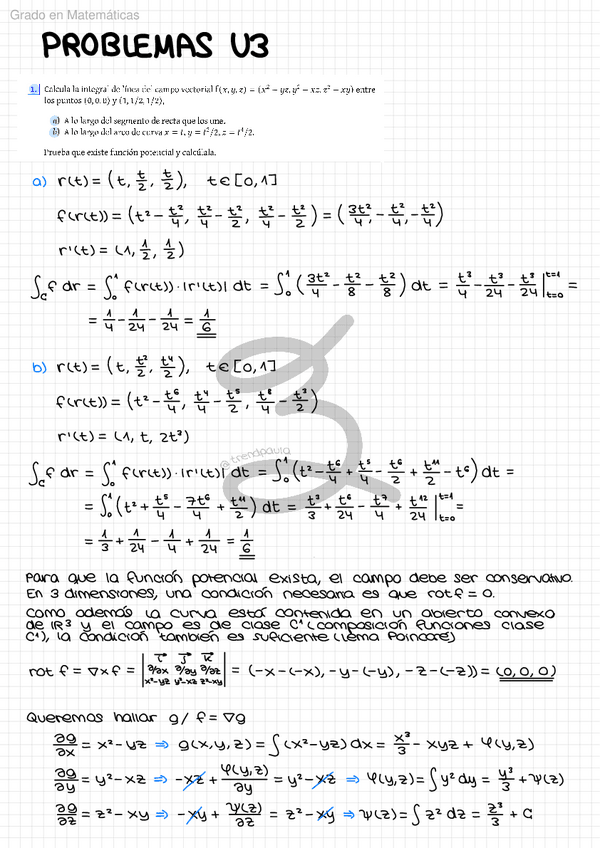 Grado en Matemáticas
PROBLEMAS U3
1. Calcula la integral de línea del campo vectorial f(x, y, z) = (x² − yz, y² − xz, z² − xy) entre
los puntos (0, 0, 0) y (1, 1/2, 1/2),
a) A lo largo del segmento de recta que los une.
b) A lo largo del arco de curva x = t, y = t²/2, z = t⁴/2.
Prueba que existe función potencial y calcúlala.
a) r(t) = (t, t/2, t/2), t ∈ [0,1]
f(r(t)) = (t² − t²/4, t²/4 − t²/2, t²/4 − t²/2) = (3t²/4, −t²/4, −t²/4)
r'(t) = (1, 1/2, 1/2)
∫_C f dr = ∫₀¹ f(r(t)) · |r'(t)| dt = ∫₀¹ (3t²/4 − t²/8 − t²/8) dt = t³/4 − t³/24 − t³/24 |_{t=0}^{t=1} =
= 1/4 − 1/24 − 1/24 = 1/6
@trendpaula
b) r(t) = (t, t²/2, t⁴/2), t ∈ [0,1]
f(r(t)) = (t² − t⁶/4, t⁴/4 − t⁵/2, t⁸/4 − t³/2)
r'(t) = (1, t, 2t³)
∫_C f dr = ∫₀¹ f(r(t)) · |r'(t)| dt = ∫₀¹ (t² − t⁶/4 + t⁵/4 − t⁶/2 + t¹¹/2 − t⁶) dt =
= ∫₀¹ (t² + t⁵/4 − 7t⁶/4 + t¹¹/2) dt = t³/3 + t⁶/24 − t⁷/4 + t¹²/24 |_{t=0}^{t=1} =
= 1/3 + 1/24 − 1/4 + 1/24 = 1/6
Para que la función potencial exista, el campo debe ser conservativo.
En 3 dimensiones, una condición necesaria es que rot f = 0.
Como además la curva está contenida en un abierto convexo
de ℝ³ y el campo es de clase C¹ (composición funciones clase
C¹), la condición también es suficiente (Lema Poincaré)
rot f = ∇ × f = | i j k ; ∂/∂x ∂/∂y ∂/∂z ; x²−yz y²−xz z²−xy | = (−x − (−x), −y − (−y), −z − (−z)) = (0, 0, 0)
Queremos hallar g / f = ∇g
∂g/∂x = x² − yz ⇒ g(x, y, z) = ∫(x² − yz) dx = x³/3 − xyz + φ(y, z)
∂g/∂y = y² − xz ⇒ −xz + φ(y, z)/∂y = y² − xz ⇒ φ(y, z) = ∫ y² dy = y³/3 + ψ(z)
∂g/∂z = z² − xy ⇒ −xy + ψ(z)/∂z = z² − xy ⇒ ψ(z) = ∫ z² dz = z³/3 + C